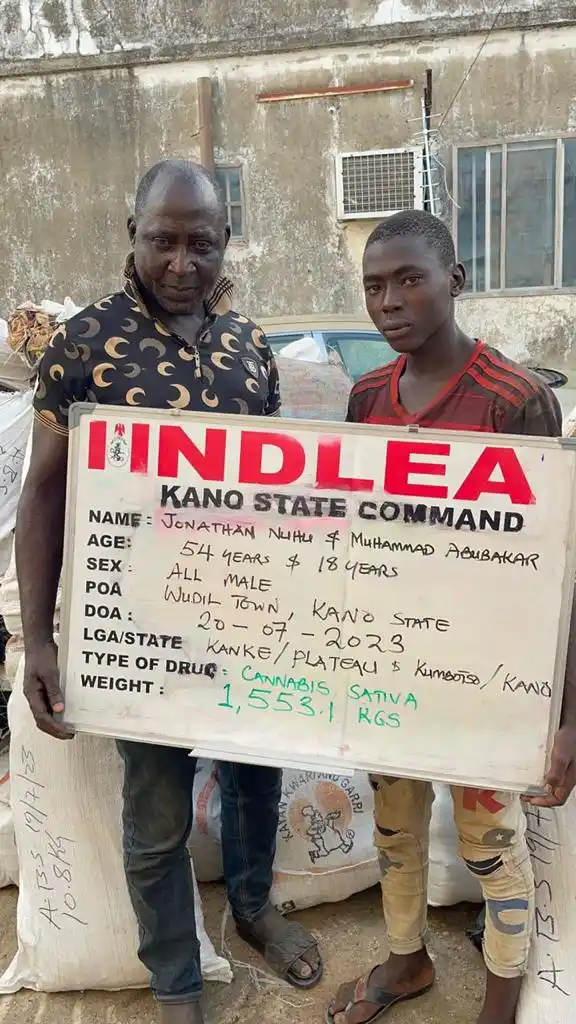 NDLEA
KANO STATE COMMAND
NAME: JONATHAN NUHU & MUHAMMAD ABUBAKAR
AGE: 54 YEARS & 18 YEARS
SEX: ALL MALE
POA WUDIL TOWN, KANO STATE
DOA: 20-07-2023
LGA/STATE KANKE/PLATEAU & KUMBOTSO/KANO
TYPE OF DRUG: CANNABIS SATIVA
WEIGHT: 1,553.1 KGS
A.B.S 19/7/23
10.8KG
KWARIANO GARRI
A.B.S 19/7